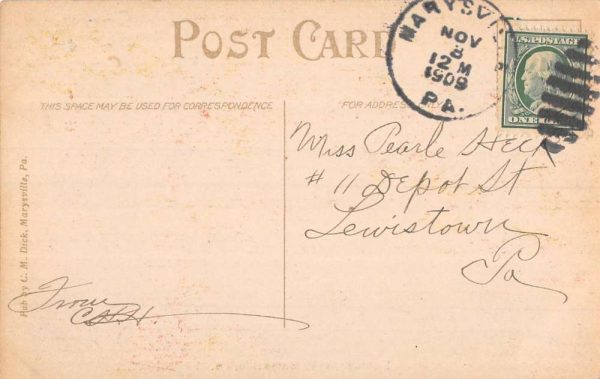 POST CARD
MARYSVI
NOV
8
12 M
1909
PA.
U.S. POSTAGE
ONE
THIS SPACE MAY BE USED FOR CORRESPONDENCE
FOR ADDRESS
Miss Pearle Heck
#11 Depot St
Lewistown
Pa
Pub by C. M. Dick, Marysville, Pa.
From